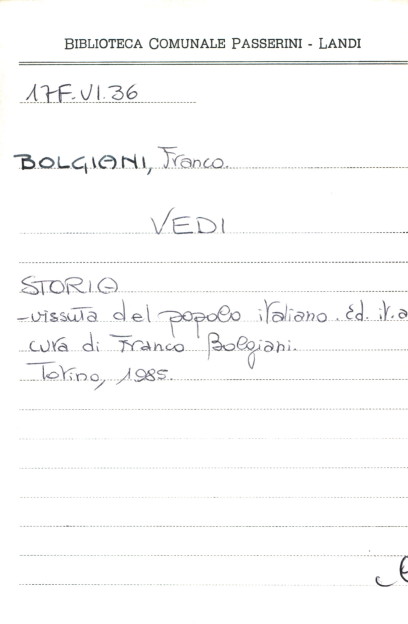 BIBLIOTECA COMUNALE PASSERINI - LANDI
17F.VI.36
BOLGIANI, Franco.
VEDI
STORIA
-vissuta del popolo italiano. Ed. it. a
cura di Franco Bolgiani.
Torino, 1985.